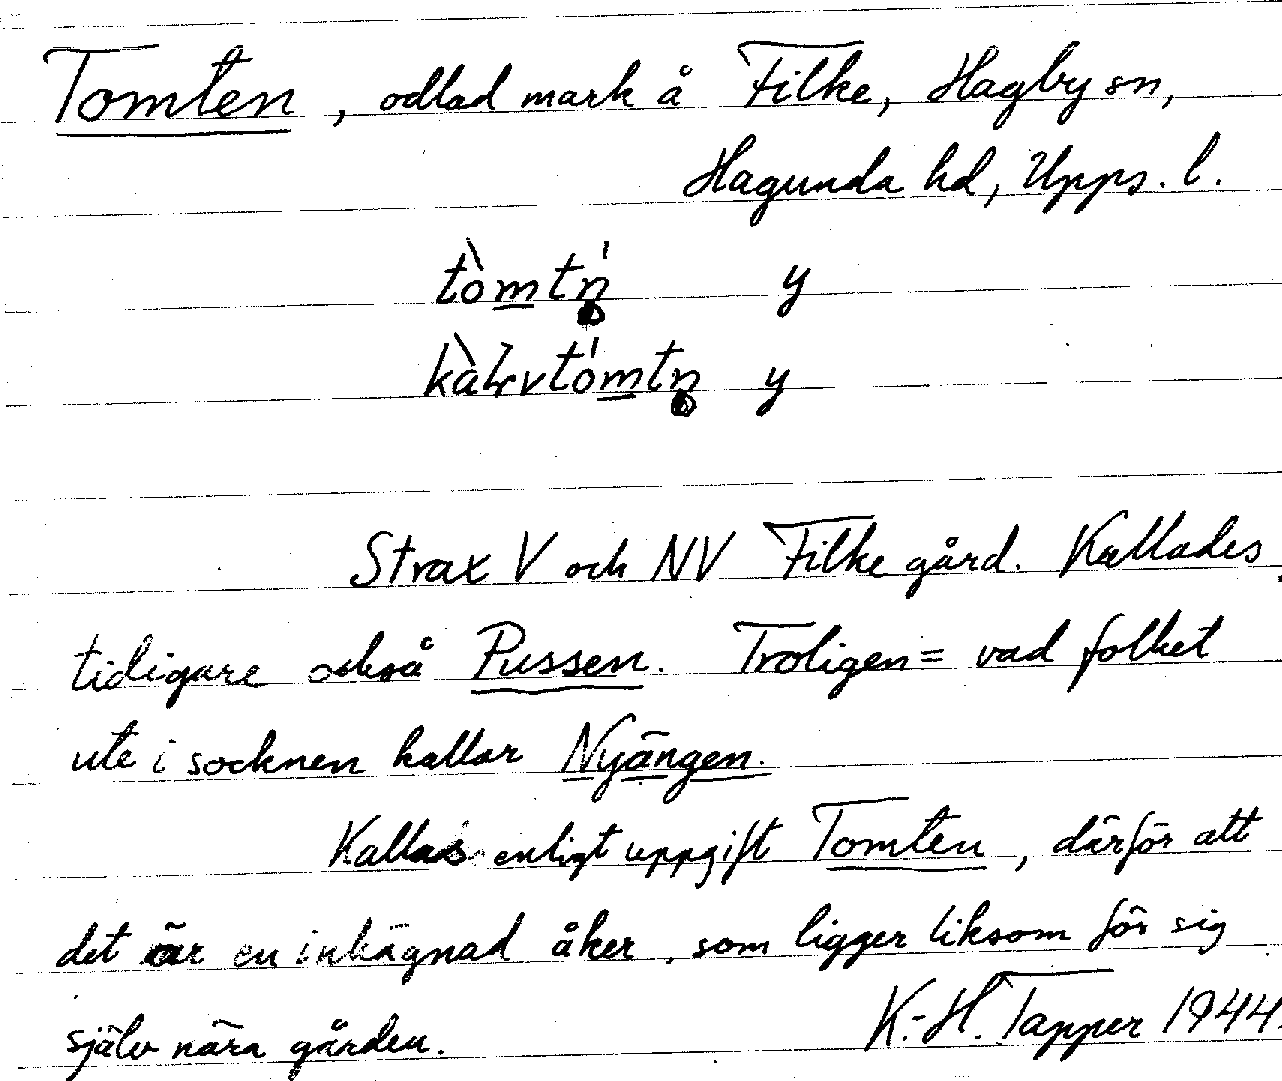 Tomten, odlad mark å Filke, Hagby sn,
Hagunda hd, Upps. l.
tòmtn̥ y
y
Strax V och NV Filke gård. Kallades
tidigare också Pussen. Troligen = vad folket
ute i socknen kallar Nyängen.
Kallas enligt uppgift Tomten, därför att
det är en inhägnad åker, som ligger liksom för sig
själv nära gården.
K.-H. Tapper 1944.